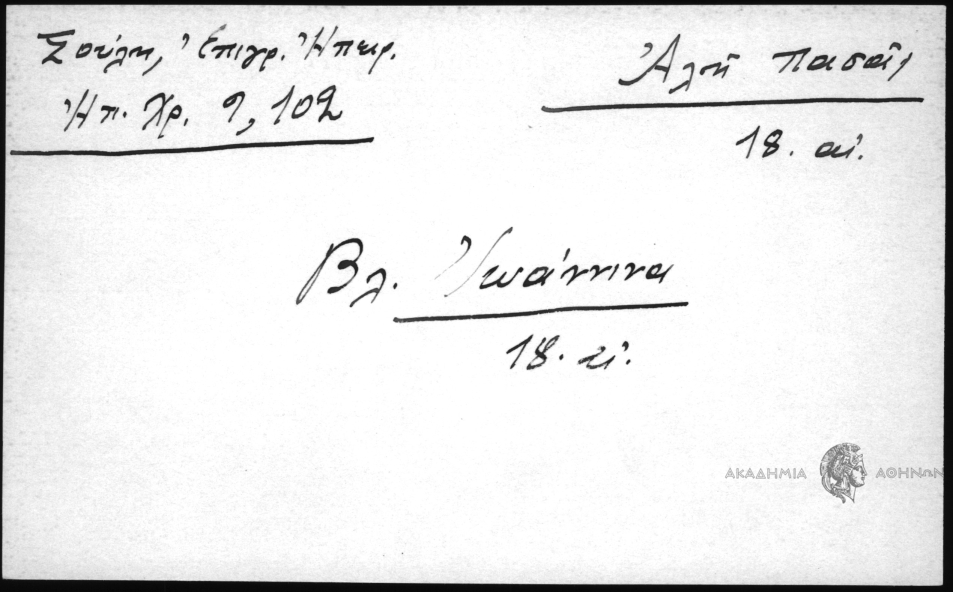 Σούλη, Ἐπιγρ. Ἠπειρ.
Ἠπ. Χρ. 9, 102
Ἀλῆ Πασᾶς
18. αἰ.
Βλ. Ἰωάννινα
18. αἰ.
ΑΚΑΔΗΜΙΑ ΑΘΗΝΩΝ